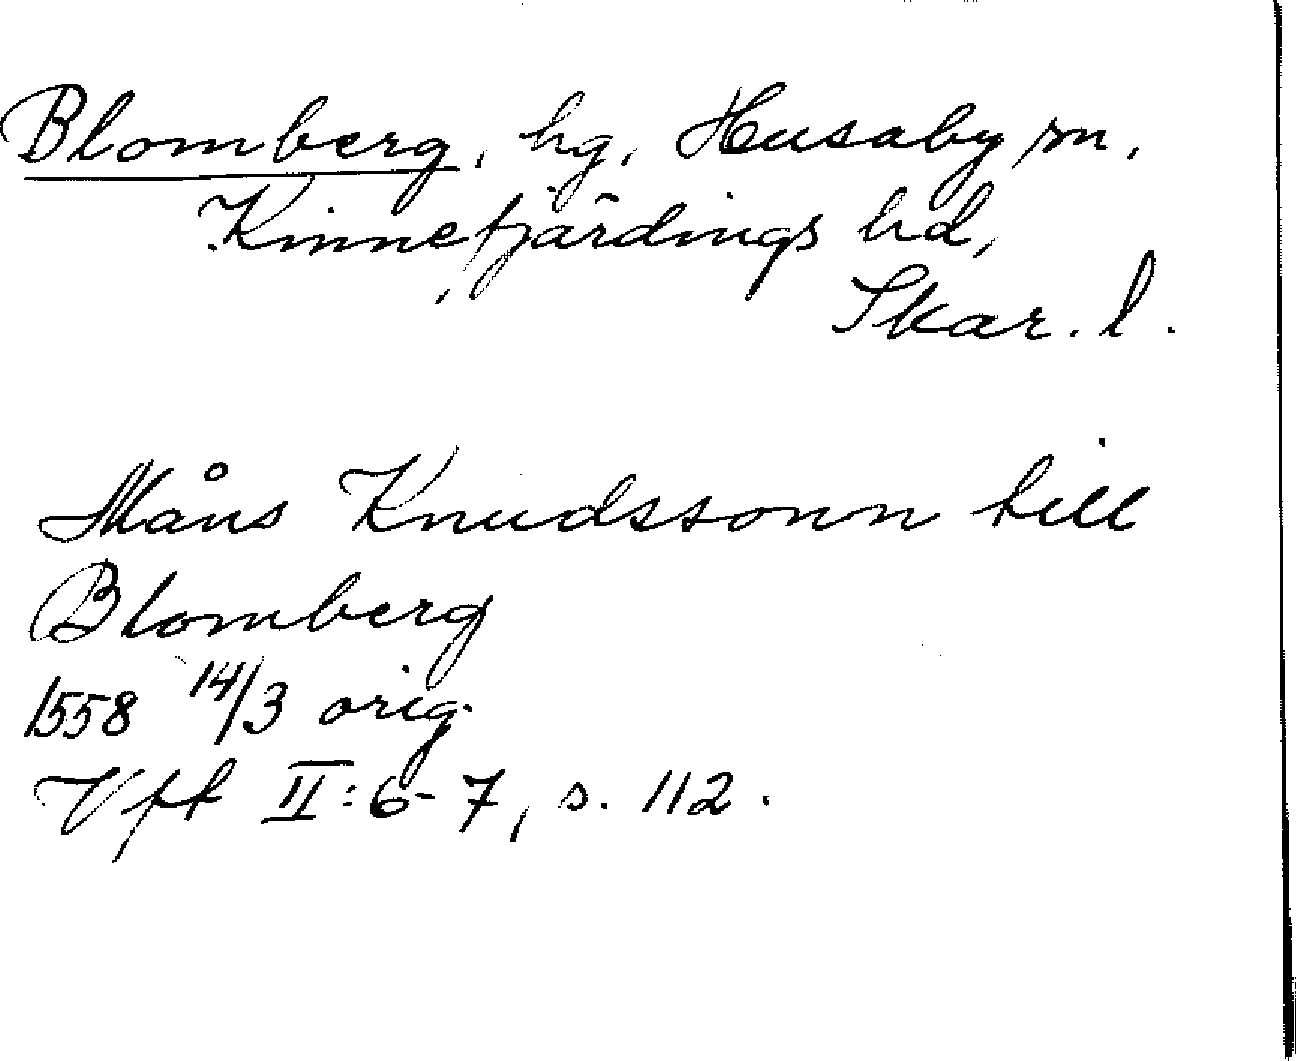 Blomberg, hg, Husaby sn,
Kinnefjärdings hd,
Skar. l.
Måns Knudssonn till
Blomberg
1558 14/3 orig.
Vff II:6-7, s. 112.